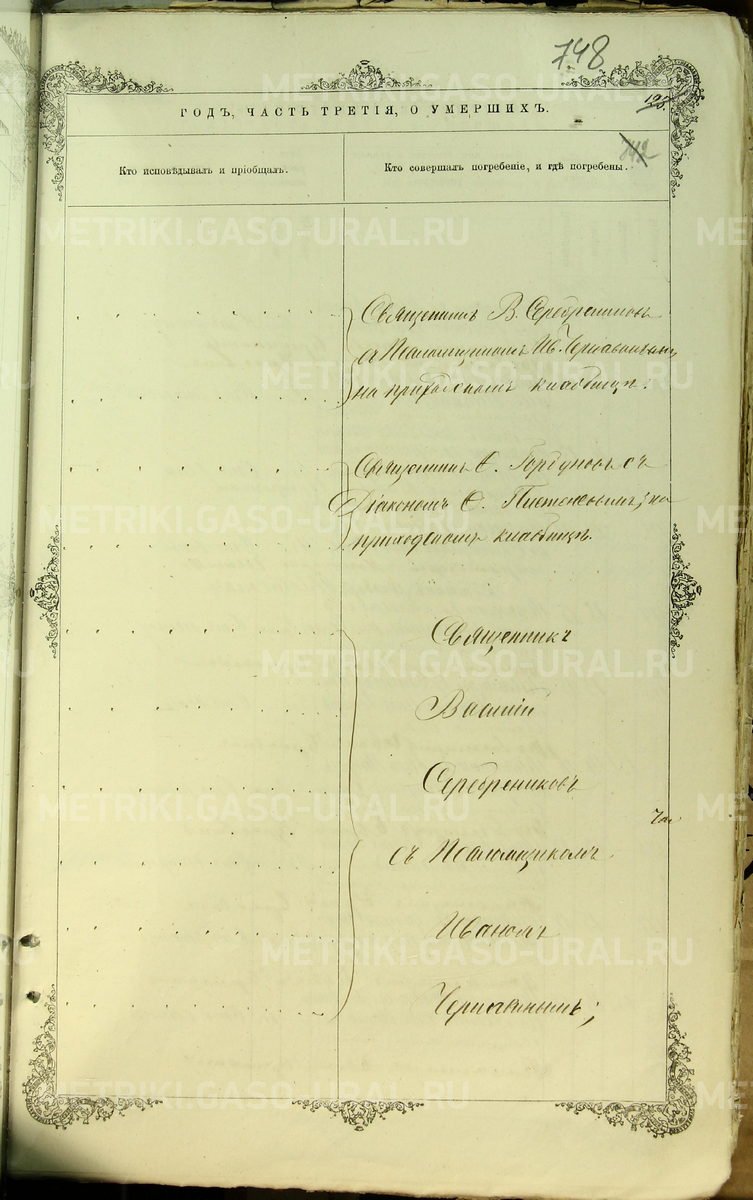 748
198.
ГОДЪ, ЧАСТЬ ТРЕТІЯ, О УМЕРШИХЪ.
Кто исповѣдывалъ и пріобщалъ.
Кто совершалъ погребеніе, и гдѣ погребены.
Священникъ В. Серебрениковъ
съ Псаломщикомъ Ив.
на приходскомъ кладбищѣ.
Священникъ Горбуновъ съ
Діакономъ на
приходскомъ кладбищѣ.
Священникъ
Василій
Серебрениковъ
съ Псаломщикомъ
Иваномъ
METRIKI.GASO-URAL.RU